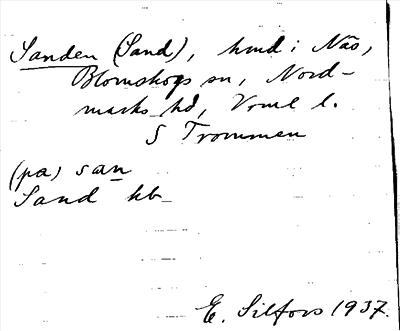 Sanden (Sand), hmd i Näs,
Blomskogs sn, Nord-
marks hd, Vrml l.
S Trommen
(pa) san
Sand kb
E. Silfors 1937.